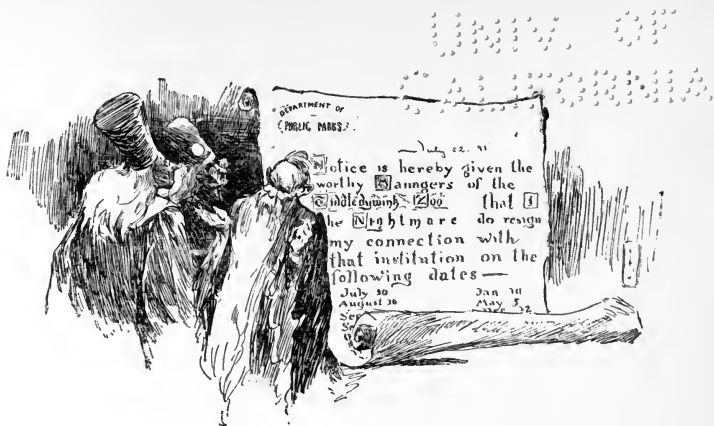 UNIV. OF
CALIFORNIA
DEPARTMENT OF
PUBLIC PARKS.
July 22. 91
Notice is hereby given the
worthy Manngers of the
Tiddledywink Zoo that I
he Nightmare do resign
my connection with
that institution on the
following dates—
July 30 Jan
August 30 May 5
Sep
Se